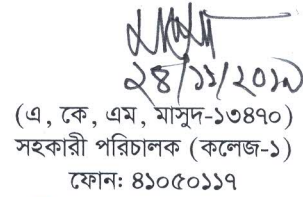 ২৪/১১/২০১৯
(এ, কে, এম, মাসুদ-১৩৪৭০)
সহকারী পরিচালক (কলেজ-১)
ফোনঃ ৪১০৫০১১৭